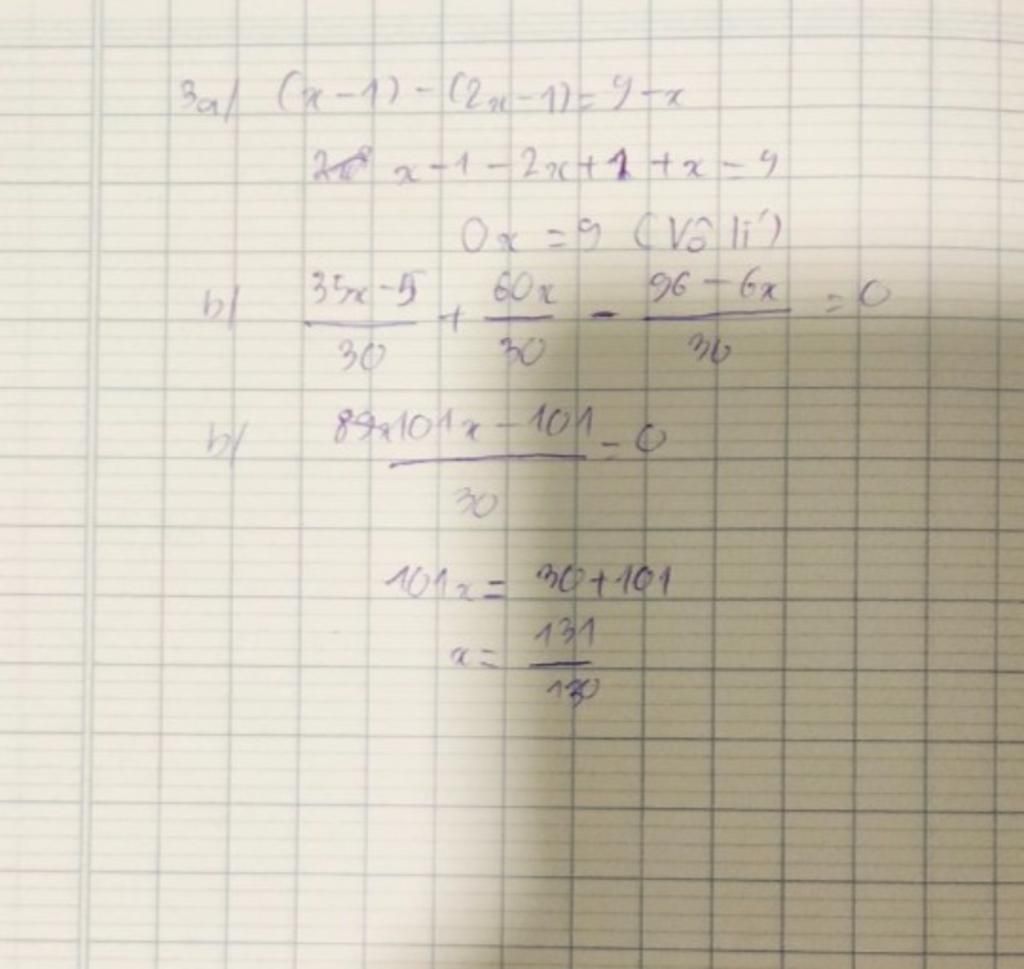 3a/ (x-1) - (2x-1) = 9-x
x-1-2x+1+x=9
0x = 9 (Vô lí)
b/ \frac{35x-5}{30} + \frac{60x}{30} - \frac{96-6x}{30} = 0
b/ \frac{101x-101}{30} = 0
101x = 30+101
x = \frac{131}{130}